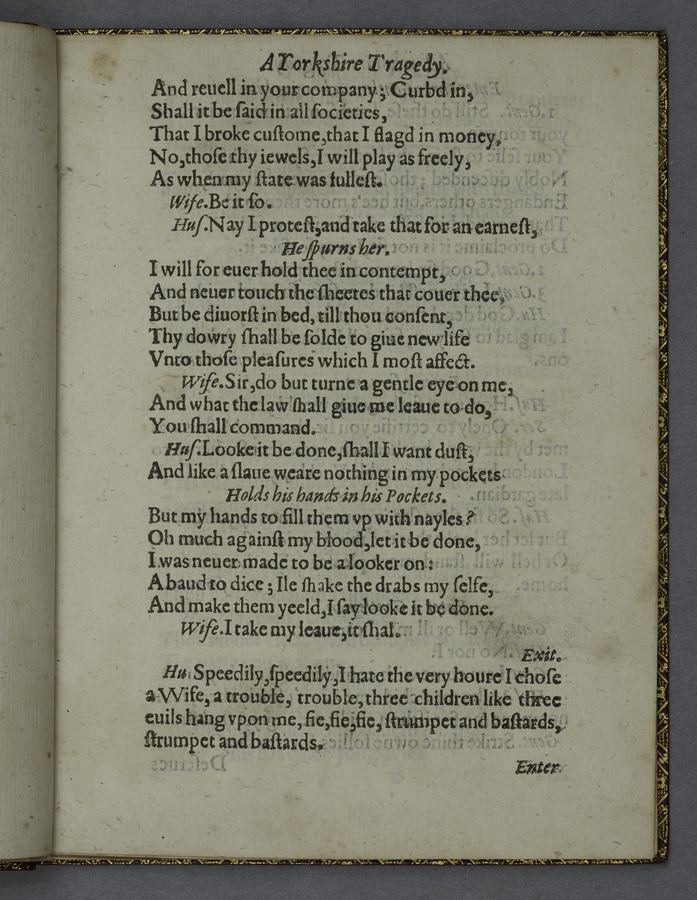 A Yorkshire Tragedy.
And reuell in your company; Curbd in,
Shall it be ſaid in all ſocieties,
That I broke cuſtome,that I flagd in money,
No,thoſe thy iewels,I will play as freely,
As when my ſtate was fulleſt.
Wife.Be it ſo.
Huſ.Nay I proteſt,and take that for an earneſt,
He ſpurns her.
I will for euer hold thee in contempt,
And neuer touch the ſheetes that couer thee,
But be diuorſt in bed, till thou conſent,
Thy dowry ſhall be ſolde to giue new life
Vnto thoſe pleaſures which I moſt affect.
Wife.Sir,do but turne a gentle eye on me,
And what the law ſhall giue me leaue to do,
You ſhall command.
Huſ.Looke it be done,ſhall I want duſt,
And like a ſlaue weare nothing in my pockets
Holds his hands in his Pockets.
But my hands to fill them vp with nayles?
Oh much againſt my blood,let it be done,
I was neuer made to be a looker on:
A baud to dice; Ile ſhake the drabs my ſelfe,
And make them yeeld,I ſay looke it be done.
Wife.I take my leaue,it ſhal.
Exit.
Hu Speedily,ſpeedily,I hate the very houre I choſe
a Wife, a trouble, trouble,three children like three
euils hang vpon me, fie,fie,fie, ſtrumpet and baſtards,
ſtrumpet and baſtards.
Enter